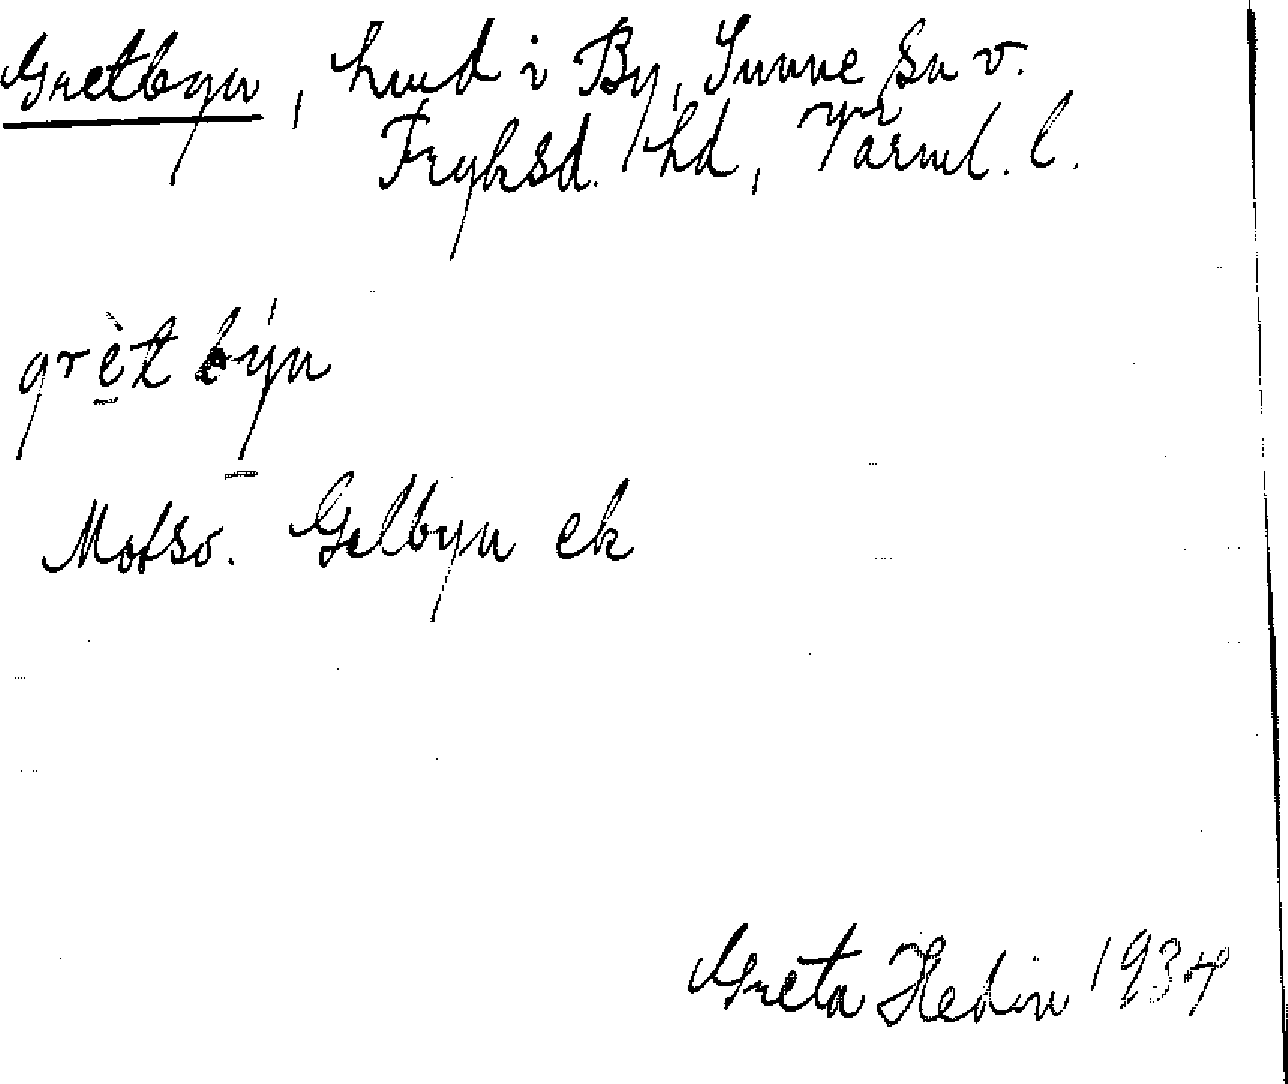 Gretbyn, hmd i By, Sunne sn v.
Fryksd. hd, Värml. l.
grèt býn
Motsv. Gelbyn ek
Greta Hedin 1934